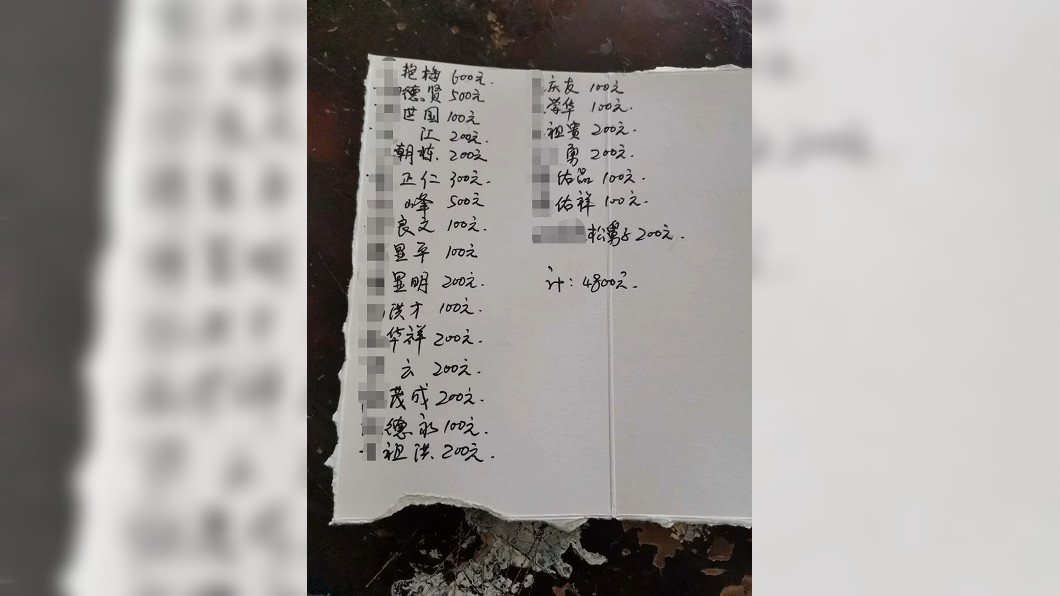 艳梅 600元.
德贤 500元
世国 100元
江 200元.
朝栋. 200元
正仁 300元.
峰 500元
良文 100元.
显平 100元
显明 200元.
洪才 100元.
华祥 200元
云 200元.
茂成 200元.
德永 100元.
祖洪. 200元.
庆友 100元
荣华 100元.
祖贵 200元.
勇 200元.
佑品 100元.
佑祥 100元.
松舅子 200元.
计: 4800元.